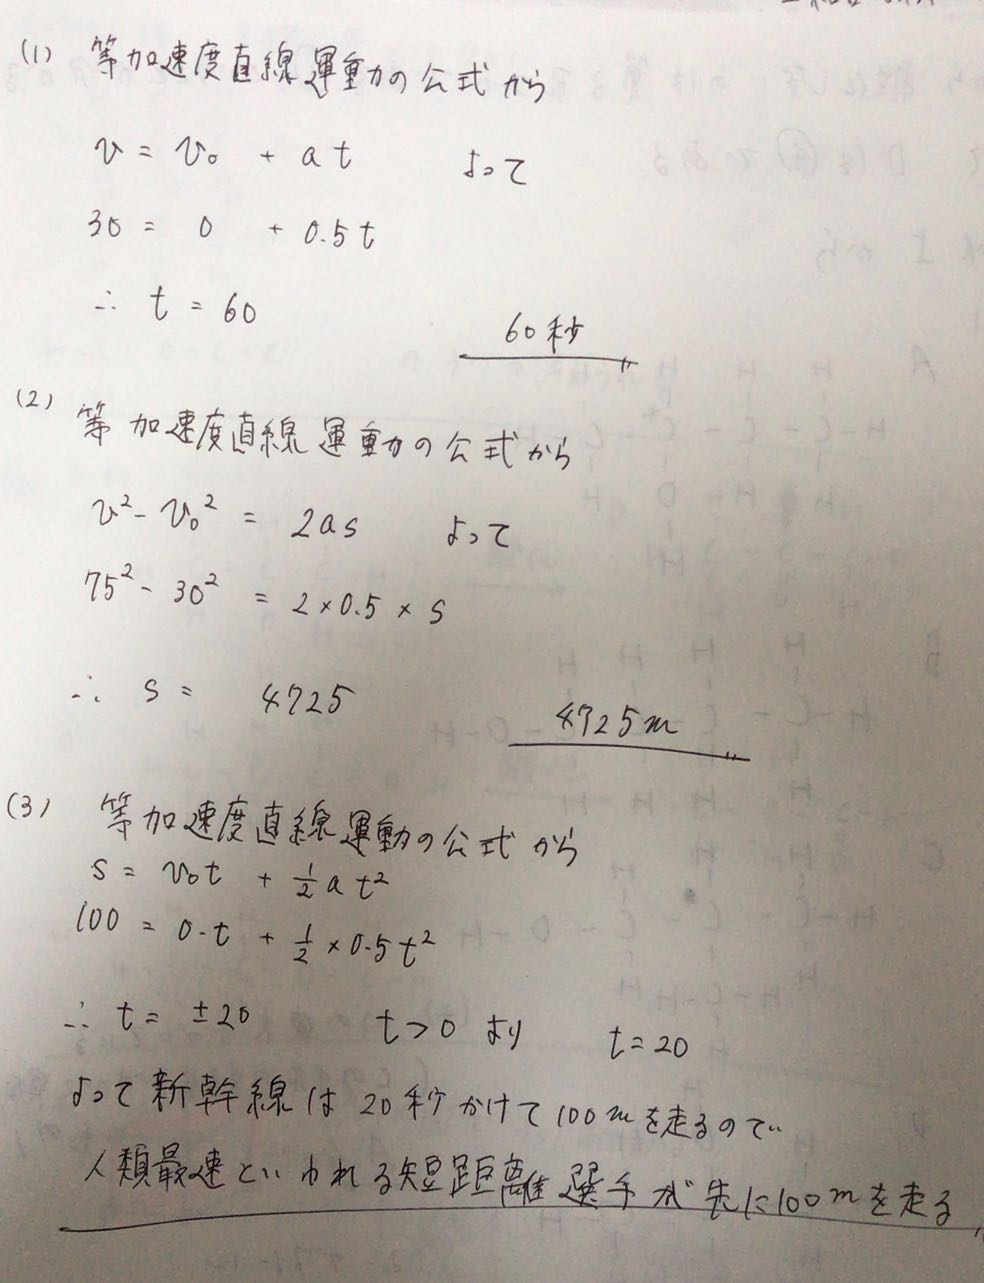 (1) 等加速度直線運動の公式から
v = v₀ + at よって
30 = 0 + 0.5t
∴ t = 60
60秒
(2) 等加速度直線運動の公式から
v² - v₀² = 2as よって
75² - 30² = 2×0.5×s
∴ s = 4725
4725m
(3) 等加速度直線運動の公式から
s = v₀t + 1/2 at²
100 = 0·t + 1/2 × 0.5t²
∴ t = ±20 t>0 より t=20
よって新幹線は20秒かけて100mを走るので
人類最速といわれる短距離選手が先に100mを走る